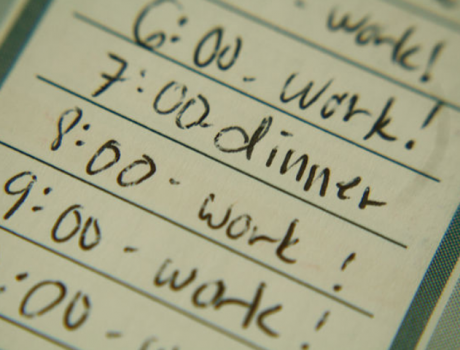 work!
6:00- work!
7:00-dinner
8:00- work!
9:00-work!
:00-